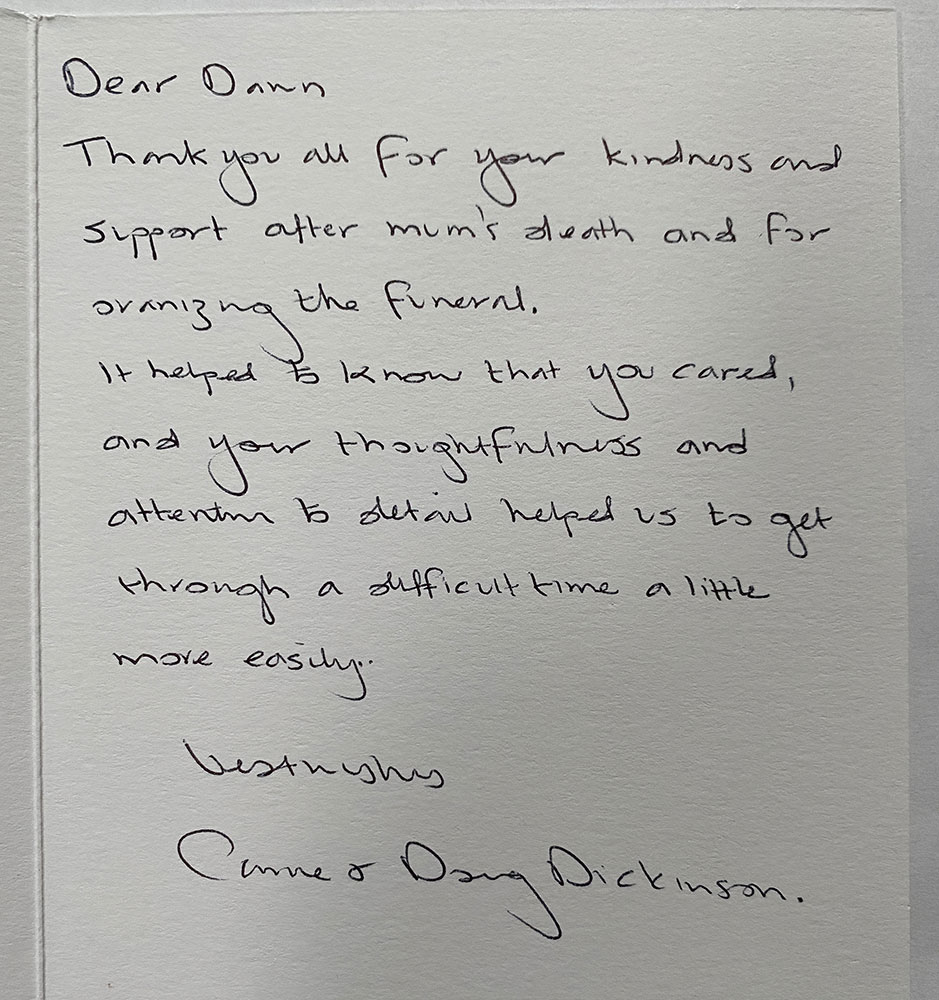 Dear Dawn
Thank you all for your kindness and
support after mum's death and for
oranizng the funeral.
It helped to know that you cared,
and your thoughtfulness and
attention to detail helped us to get
through a difficult time a little
more easily.
best wishes
& Doug Dickinson.